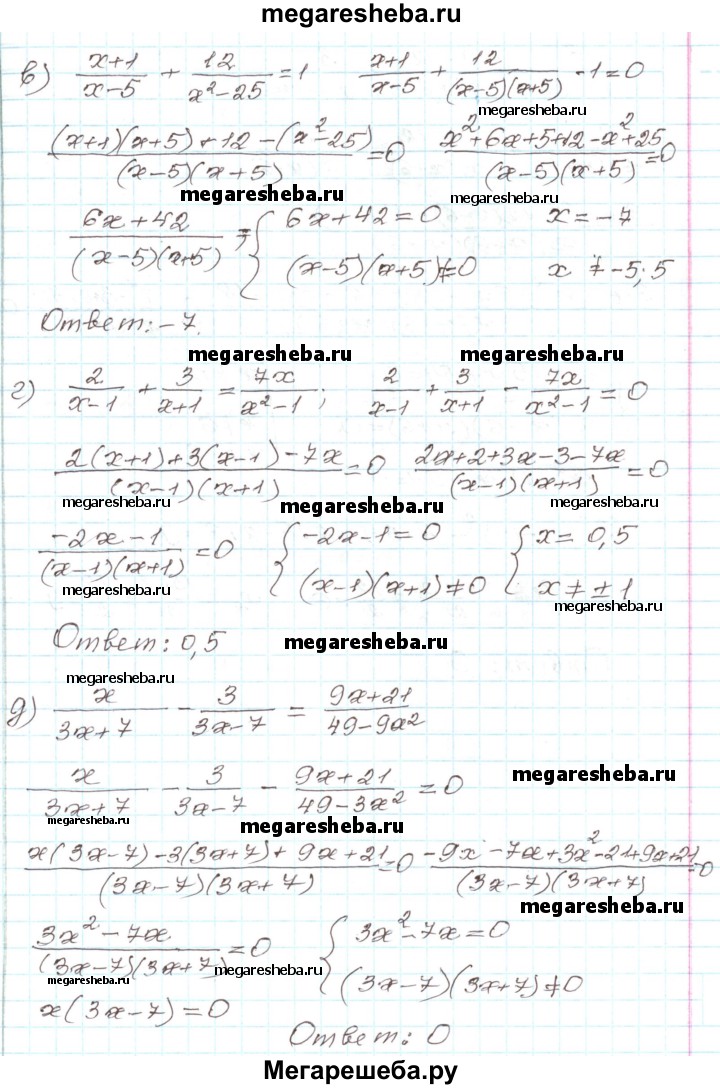 megaresheba.ru
в) (x+1)/(x-5) + 12/(x²-25) = 1    (x+1)/(x-5) + 12/((x-5)(x+5)) - 1 = 0
megaresheba.ru
((x+1)(x+5)+12-(x²-25))/((x-5)(x+5)) = 0    (x²+6x+5+12-x²+25)/((x-5)(x+5)) = 0
megaresheba.ru megaresheba.ru
(6x+42)/((x-5)(x+5)) ; { 6x+42=0    x=-7
(x-5)(x+5)≠0    x ≠ -5; 5
Ответ: -7.
megaresheba.ru megaresheba.ru
г) 2/(x-1) + 3/(x+1) = 7x/(x²-1) ;    2/(x-1) + 3/(x+1) - 7x/(x²-1) = 0
(2(x+1)+3(x-1)-7x)/((x-1)(x+1)) = 0    (2x+2+3x-3-7x)/((x-1)(x+1)) = 0
megaresheba.ru megaresheba.ru megaresheba.ru
(-2x-1)/((x-1)(x+1)) = 0    { -2x-1=0    { x= 0,5
(x-1)(x+1)≠0    x≠±1
megaresheba.ru megaresheba.ru
Ответ: 0,5 megaresheba.ru
megaresheba.ru
д) x/(3x+7) - 3/(3x-7) = (9x+21)/(49-9x²)
x/(3x+7) - 3/(3x-7) - (9x+21)/(49-3x²) = 0 megaresheba.ru
megaresheba.ru megaresheba.ru
(x(3x-7)-3(3x+7)+9x+21)/((3x-7)(3x+7)) = 0    (-9x-7x+3x²-21+9x+21)/((3x-7)(3x+7)) = 0
megaresheba.ru
(3x²-7x)/((3x-7)(3x+7)) = 0    { 3x²-7x=0
megaresheba.ru megaresheba.ru (3x-7)(3x+7)≠0
x(3x-7)=0
Ответ: 0
Мегарешеба.ру